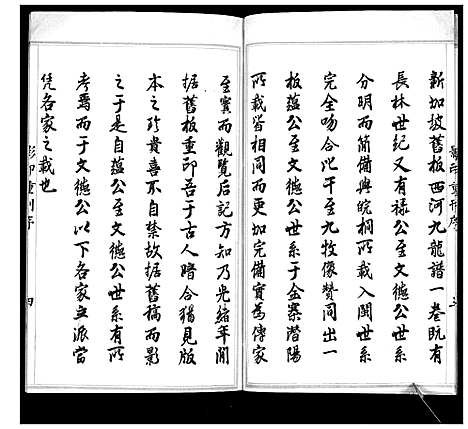 新加坡舊板西河九龍譜一卷既有
長林世紀又有祿公至文德公世系
分明而简備與皖桐所載入閩世系
完全吻合比干至九牧像贊同出一
板蕴公至文德公世系于金寨潛陽
所載皆相同而更加完備實為傳家
至寳而觀覧后記方知乃光緒年間
据舊板重印吾于古人暗合猶見版
本之珍貴喜不自禁故据舊稿而影
之于是自蕴公至文德公世系有所
考焉而于文德公以下各家立派當
凭各家之載也
影印重刊序
四
影印重刊序
三